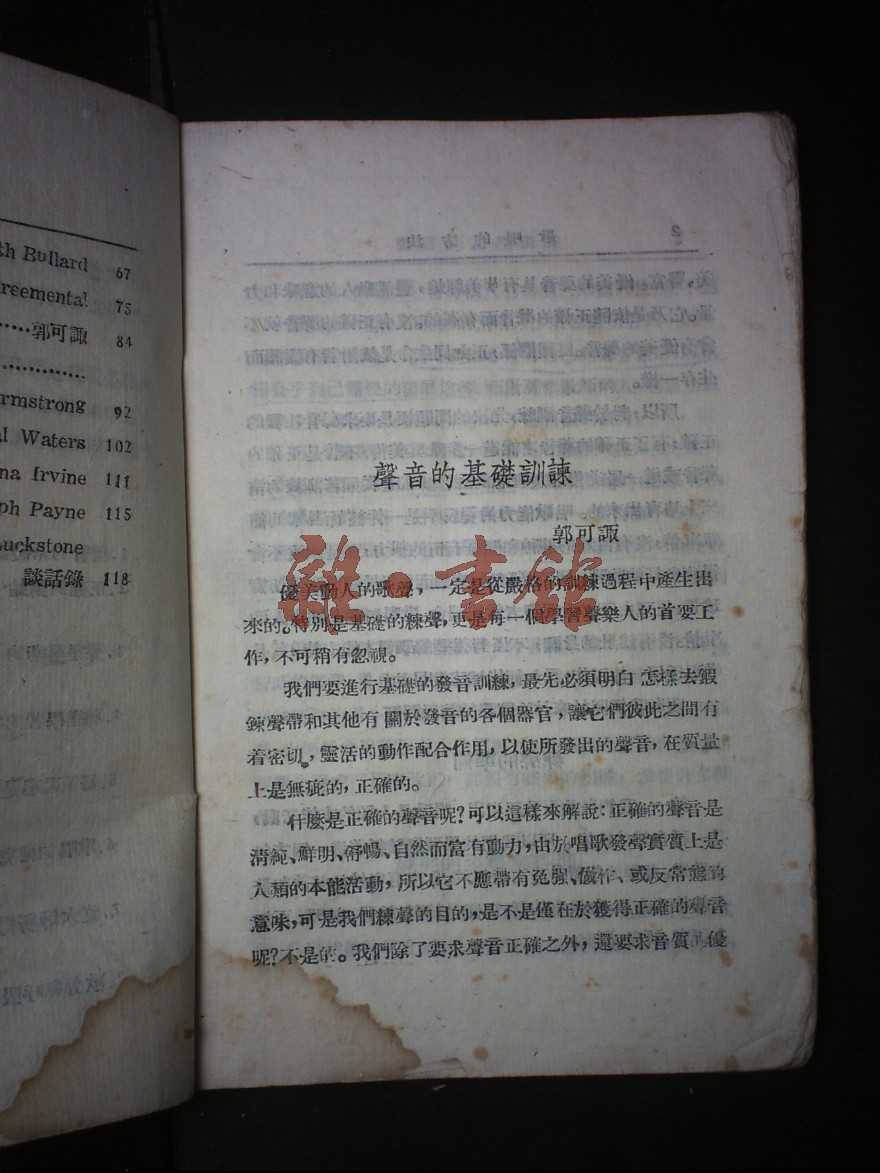 th Bullard 67
reemental 75
郭可諏 84
rmstrong 92
l Waters 102
na Irvine 111
ph Payne 115
uckstone
談話錄 118
聲音的基礎訓諫
郭可諏
雜·書館
優美動人的歌聲，一定是從嚴格的訓練過程中產生出
來的。特別是基礎的練聲，更是每一個學習聲樂人的首要工
作，不可稍有忽視。
我們要進行基礎的發音訓練，最先必須明白怎樣去鍛
鍊聲帶和其他有關於發音的各個器官，讓它們彼此之間有
着密切，靈活的動作配合作用，以使所發出的聲音，在質量
上是無疵的，正確的。
什麼是正確的聲音呢？可以這樣來解說：正確的聲音是
清純、鮮明、舒暢、自然而富有動力，由於唱歌發聲實質上是
人類的本能活動，所以它不應帶有勉强、做作、或反常態的
意味，可是我們練聲的目的，是不是僅在於獲得正確的聲音
呢？不是的。我們除了要求聲音正確之外，還要求音質 優